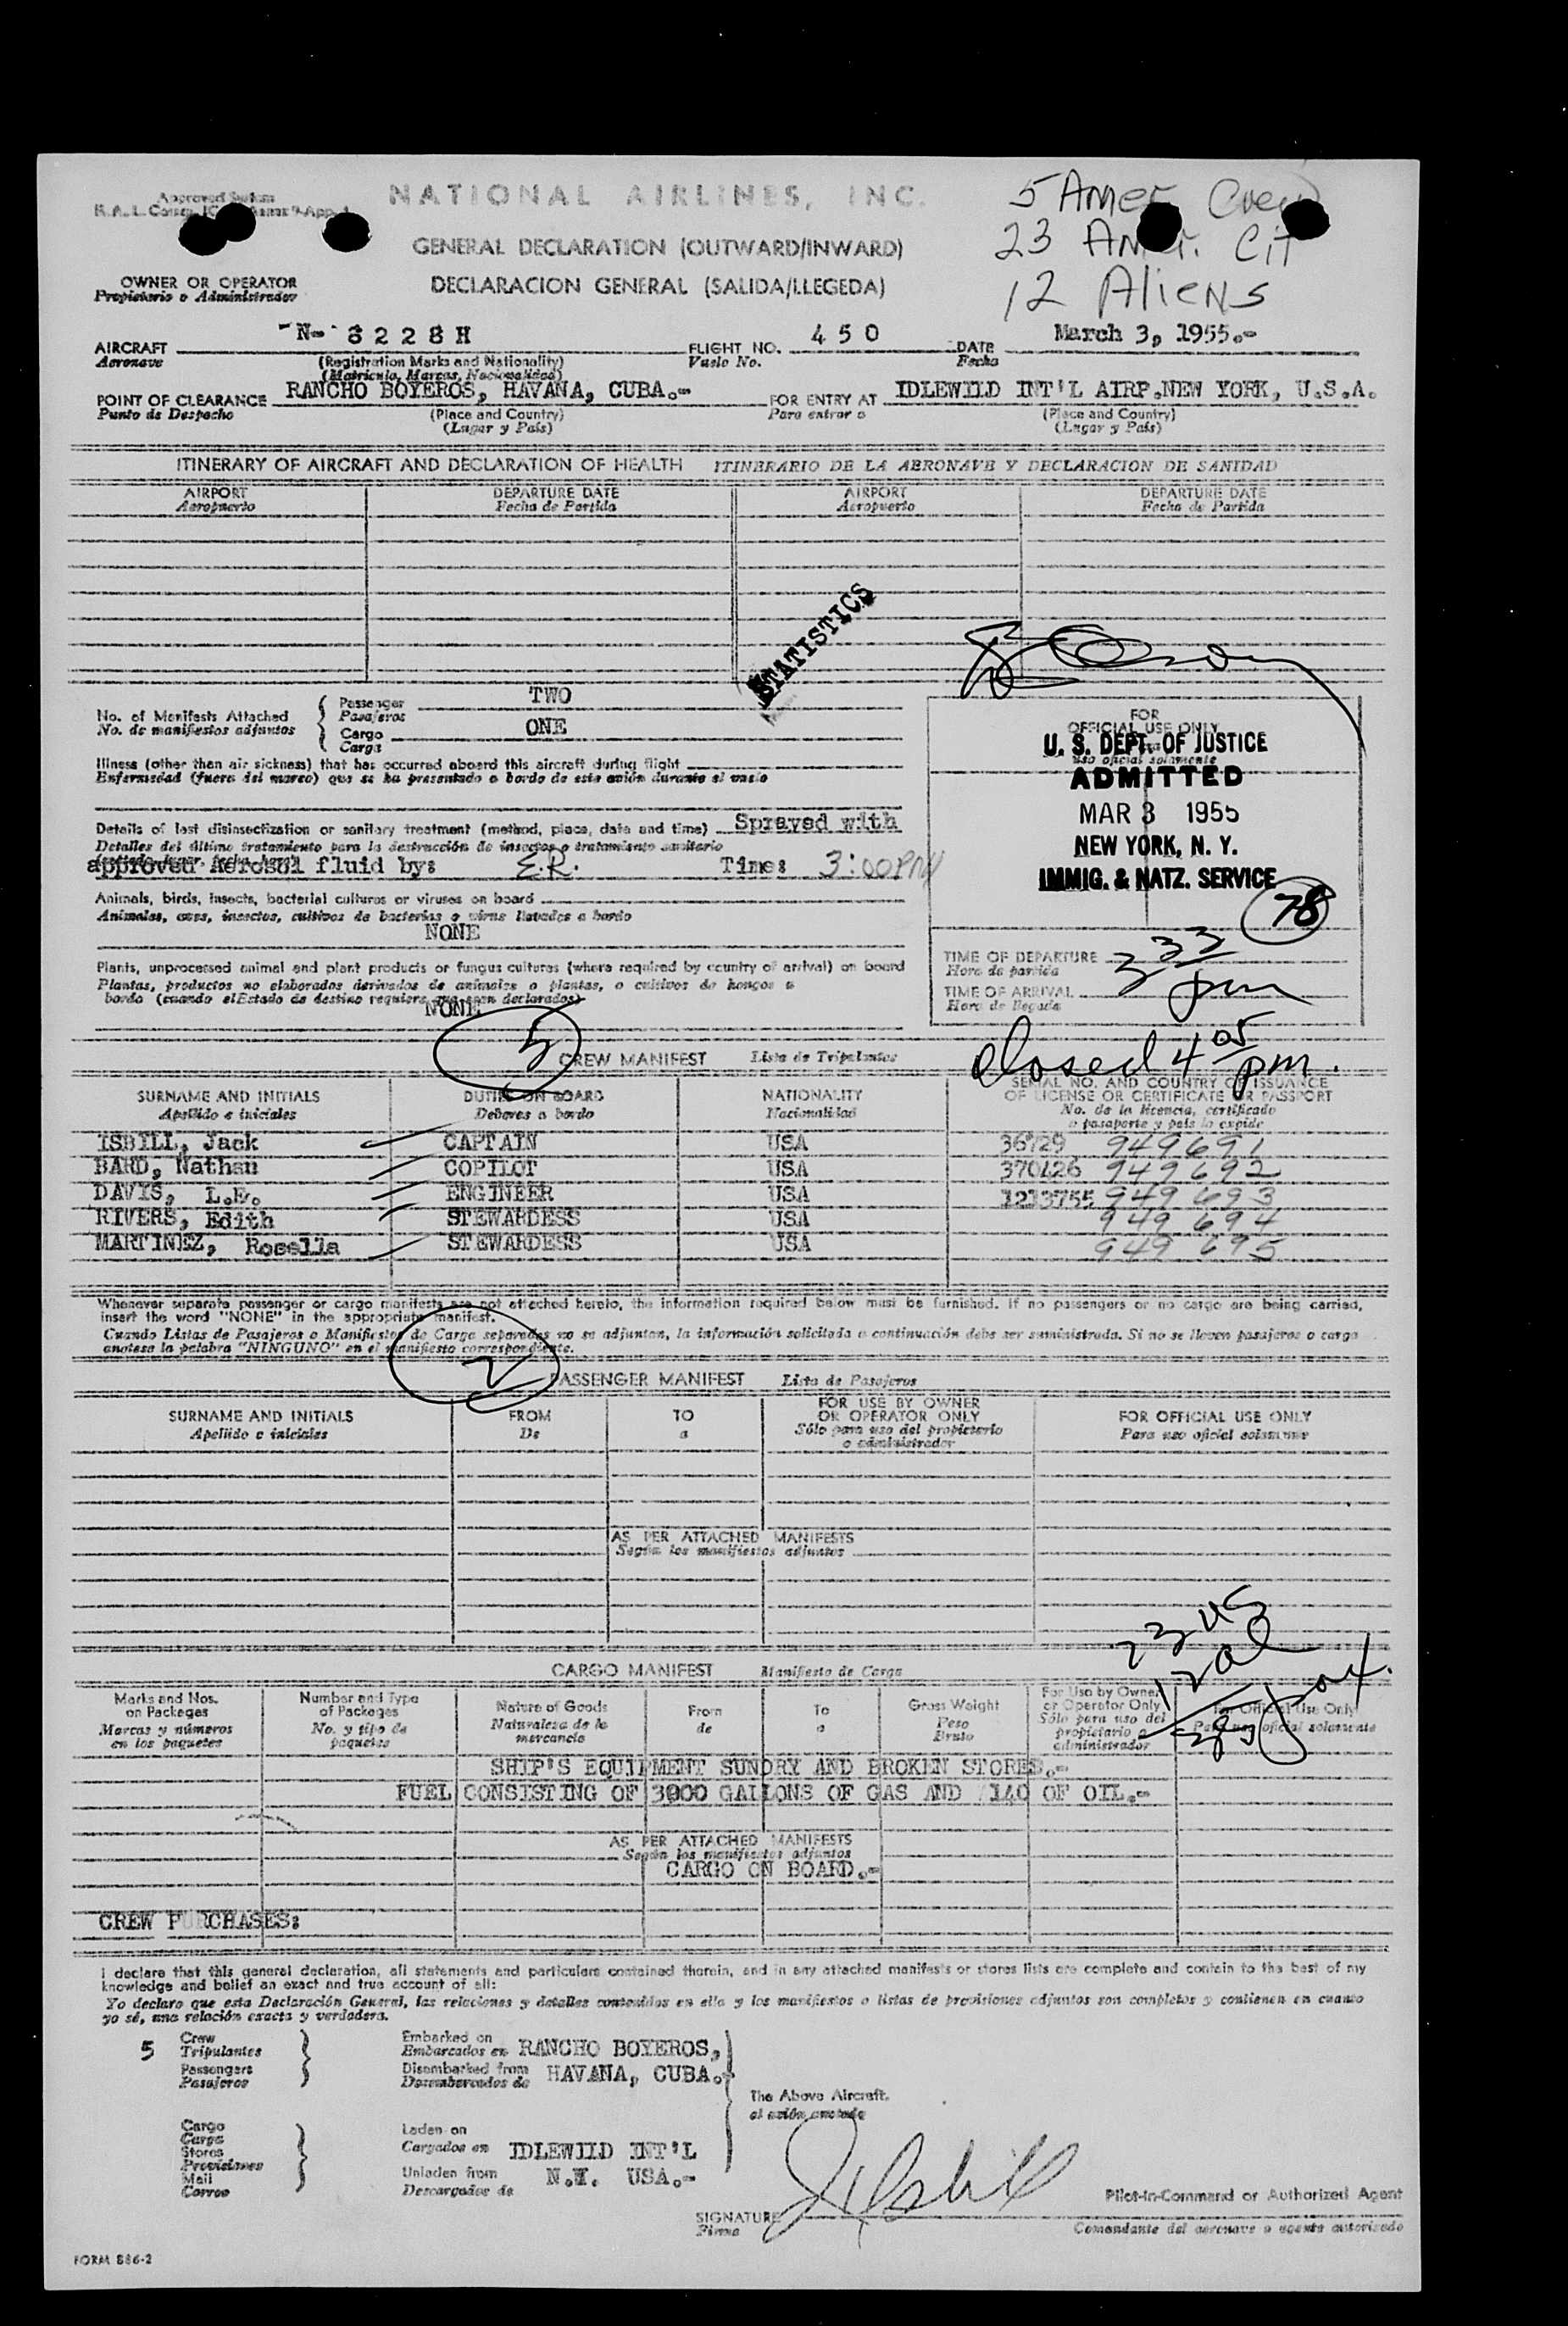 NATIONAL AIRLINES, INC.
5 Amer Crew
23 Amer. Cit
12 Aliens
GENERAL DECLARATION (OUTWARD/INWARD)
DECLARACION GENERAL (SALIDA/LLEGEDA)
OWNER OR OPERATOR
Propietario o Administrador
AIRCRAFT N- 8228H FLIGHT NO. 450 DATE March 3, 1955.-
Aeronave (Registration Marks and Nationality) Vuelo No. Fecha
(Matricula, Marcas, Nacionalidad)
POINT OF CLEARANCE RANCHO BOYEROS, HAVANA, CUBA.- FOR ENTRY AT IDLEWILD INT'L AIRP.NEW YORK, U.S.A.
Punto de Despacho (Place and Country) Para entrar a (Place and Country)
(Lugar y País) (Lugar y País)
ITINERARY OF AIRCRAFT AND DECLARATION OF HEALTH ITINERARIO DE LA AERONAVE Y DECLARACION DE SANIDAD
AIRPORT DEPARTURE DATE AIRPORT DEPARTURE DATE
Aeropuerto Fecha de Partida Aeropuerto Fecha de Partida
STATISTICS
No. of Manifests Attached Passenger TWO
No. de manifiestos adjuntos Pasajeros
Cargo ONE
Carga
Illness (other than air sickness) that has occurred aboard this aircraft during flight
Enfermedad (fuera del mareo) que se ha presentado a bordo de este avión durante el vuelo
Details of last disinsectization or sanitary treatment (method, place, date and time) Sprayed with
Detalles del último tratamiento para la destrucción de insectos o tratamiento sanitario
approved Aerosol fluid by: E.R. Time: 3:00PM
Animals, birds, insects, bacterial cultures or viruses on board
Animales, aves, insectos, cultivos de bacterias o virus llevados a bordo
NONE
Plants, unprocessed animal and plant products or fungus cultures (where required by country of arrival) on board
Plantas, productos no elaborados derivados de animales o plantas, o cultivos de hongos a
bordo (cuando el Estado de destino requiere que sean declarados)
NONE
FOR
OFFICIAL USE ONLY
Uso oficial solamente
U. S. DEPT. OF JUSTICE
ADMITTED
MAR 3 1955
NEW YORK, N. Y.
IMMIG. & NATZ. SERVICE
78
TIME OF DEPARTURE 3 33
Hora de partida
TIME OF ARRIVAL pm
Hora de llegada
closed 4 05 pm.
5 CREW MANIFEST Lista de Tripulantes
SURNAME AND INITIALS DUTIES ON BOARD NATIONALITY SERIAL NO. AND COUNTRY OF ISSUANCE
OF LICENSE OR CERTIFICATE OR PASSPORT
Apellido e iniciales Deberes a bordo Nacionalidad No. de la licencia, certificado
o pasaporte y país lo expide
ISBILL, Jack CAPTAIN USA 36729 949691
BARD, Nathan COPILOT USA 370126 949692
DAVIS, L.E. ENGINEER USA 1213755 949693
RIVERS, Edith STEWARDESS USA 949 694
MARTINEZ, Roselia STEWARDESS USA 949 695
Whenever separate passenger or cargo manifests are not attached hereto, the information required below must be furnished. If no passengers or no cargo are being carried,
insert the word "NONE" in the appropriate manifest.
Cuando Listas de Pasajeros o Manifiestos de Carga separados no se adjuntan, la información solicitada a continuación debe ser suministrada. Si no se lleven pasajeros o carga
anotese la palabra "NINGUNO" en el manifiesto correspondiente.
2 PASSENGER MANIFEST Lista de Pasajeros
SURNAME AND INITIALS FROM TO FOR USE BY OWNER OR OPERATOR ONLY FOR OFFICIAL USE ONLY
Apellido e iniciales De a Sólo para uso del propietario o administrador Para uso oficial solamente
AS PER ATTACHED MANIFESTS
Según los manifiestos adjuntos
23 US
12 al
35
CARGO MANIFEST Manifiesto de Carga
Marks and Nos. on Packages Number and Type of Packages Nature of Goods From To Gross Weight For Use by Owner or Operator Only For Official Use Only
Marcas y números en los paquetes No. y tipo de paquetes Naturaleza de la mercancia de a Peso Bruto Sólo para uso del propietario o administrador Para uso oficial solamente
SHIP'S EQUIPMENT SUNDRY AND BROKEN STORES.-
FUEL CONSISTING OF 3000 GALLONS OF GAS AND 140 OF OIL.-
AS PER ATTACHED MANIFESTS
Según los manifiestos adjuntos
CARGO ON BOARD.-
CREW PURCHASES:
I declare that this general declaration, all statements and particulars contained therein, and in any attached manifests or stores lists are complete and contain to the best of my
knowledge and belief an exact and true account of all:
Yo declaro que esta Declaración General, las relaciones y detalles contenidos en ella y los manifiestos o listas de provisiones adjuntos son completos y contienen en cuanto
yo sé, una relación exacta y verdadera.
5 Crew Embarked on
Tripulantes Embarcados en RANCHO BOYEROS,
Passengers Disembarked from HAVANA, CUBA.-
Pasajeros Desembarcados de
The Above Aircraft.
el avión anotado
Cargo Laden on
Carga
Stores Cargados en IDLEWILD INT'L
Provisiones
Mail Unladen from N.Y. USA.-
Correo Descargados de
SIGNATURE J Isbill Pilot-in-Command or Authorized Agent
Firma Comandante del aeronave o agente autorizado
FORM 886-2